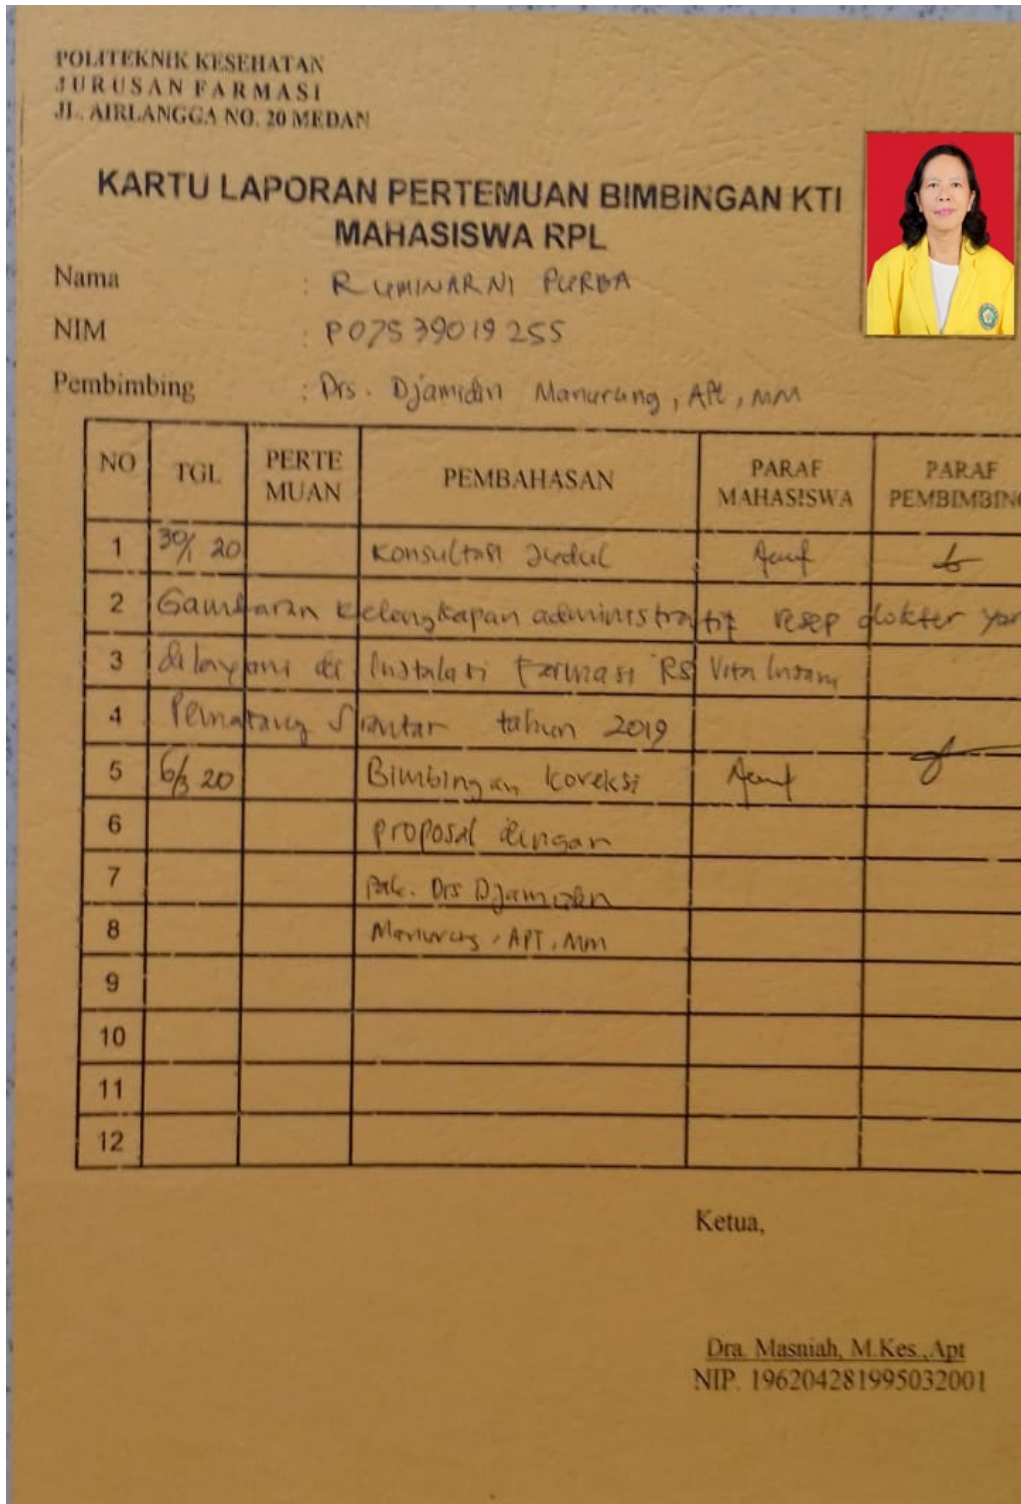 POLITEKNIK KESEHATAN
JURUSAN FARMASI
JL. AIRLANGGA NO. 20 MEDAN
KARTU LAPORAN PERTEMUAN BIMBINGAN KTI
MAHASISWA RPL
Nama : RUMINARNI PURBA
NIM : P07539019255
Pembimbing : Drs. Djamidin Manurung, Apt, MM
NO TGL PERTE MUAN PEMBAHASAN PARAF MAHASISWA PARAF PEMBIMBING
1 30/1 20 Konsultasi Judul
2 Gambaran Kelengkapan administratif resep dokter yan
3 dilayani di Instalasi Farmasi RS Vita Insani
4 Pematang Siantar tahun 2019
5 6/3 20 Bimbingan koreksi
6 proposal dengan
7 Pak. Drs Djamidin
8 Manurung, APT, MM
9
10
11
12
Ketua,
Dra. Masniah, M.Kes.,Apt
NIP. 196204281995032001